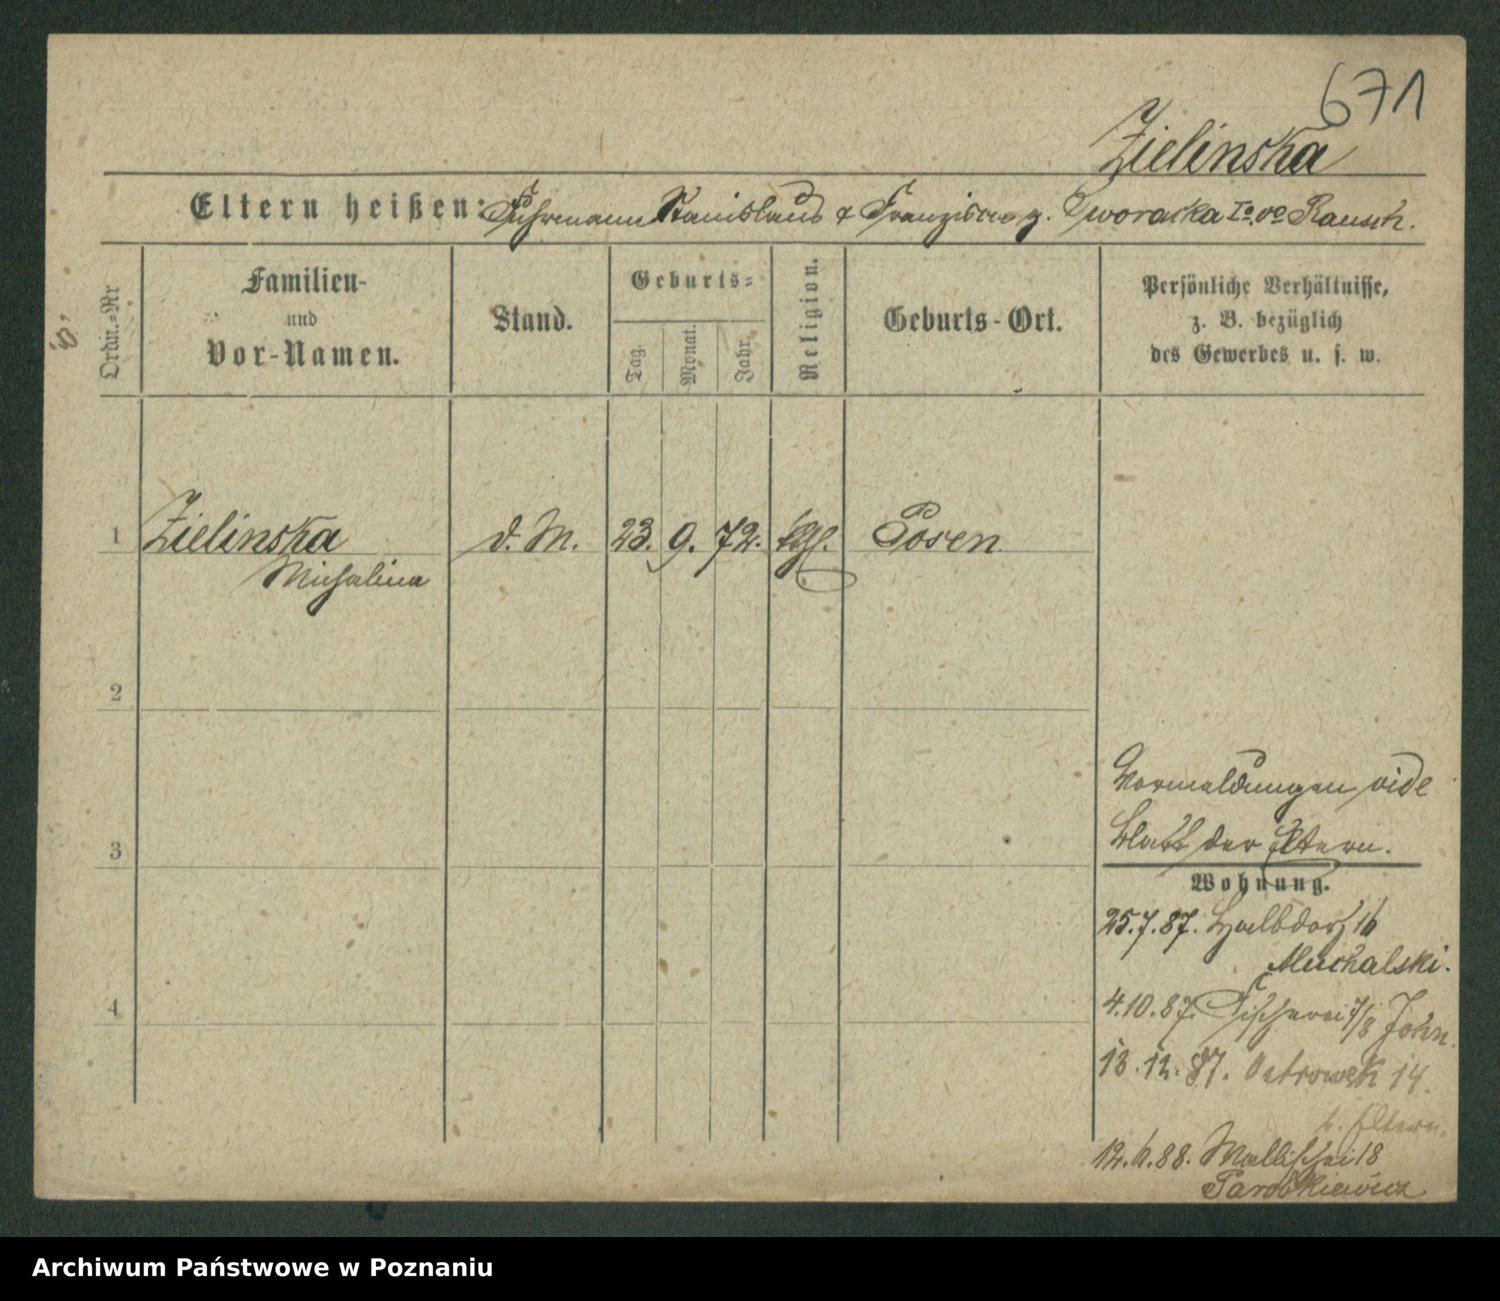 671
Zielinska
Eltern heißen: Fuhrmann Stanislaus & Franziska g. Dworacka Io vo Rausch.
Ordn.-Nr
Familien-
und
Vor-Namen.
Stand.
Geburts-
Tag.
Monat.
Jahr.
Religion.
Geburts-Ort.
Persönliche Verhältnisse,
z. B. bezüglich
des Gewerbes u. s. w.
1 Zielinska d. M. 23. 9. 72. kthl. Posen
Michalina
2
3
4
Vormeldungen vide
Blatt der Eltern.
Wohnung.
25.7.87. Halbdorf 16
Muchalski.
4.10.87. Fischerei 7/8 John.
13.12.87. Ostrowek 14.
b. Eltern.
12.6.88. Wallischei 18
Parobkiewicz
Archiwum Państwowe w Poznaniu